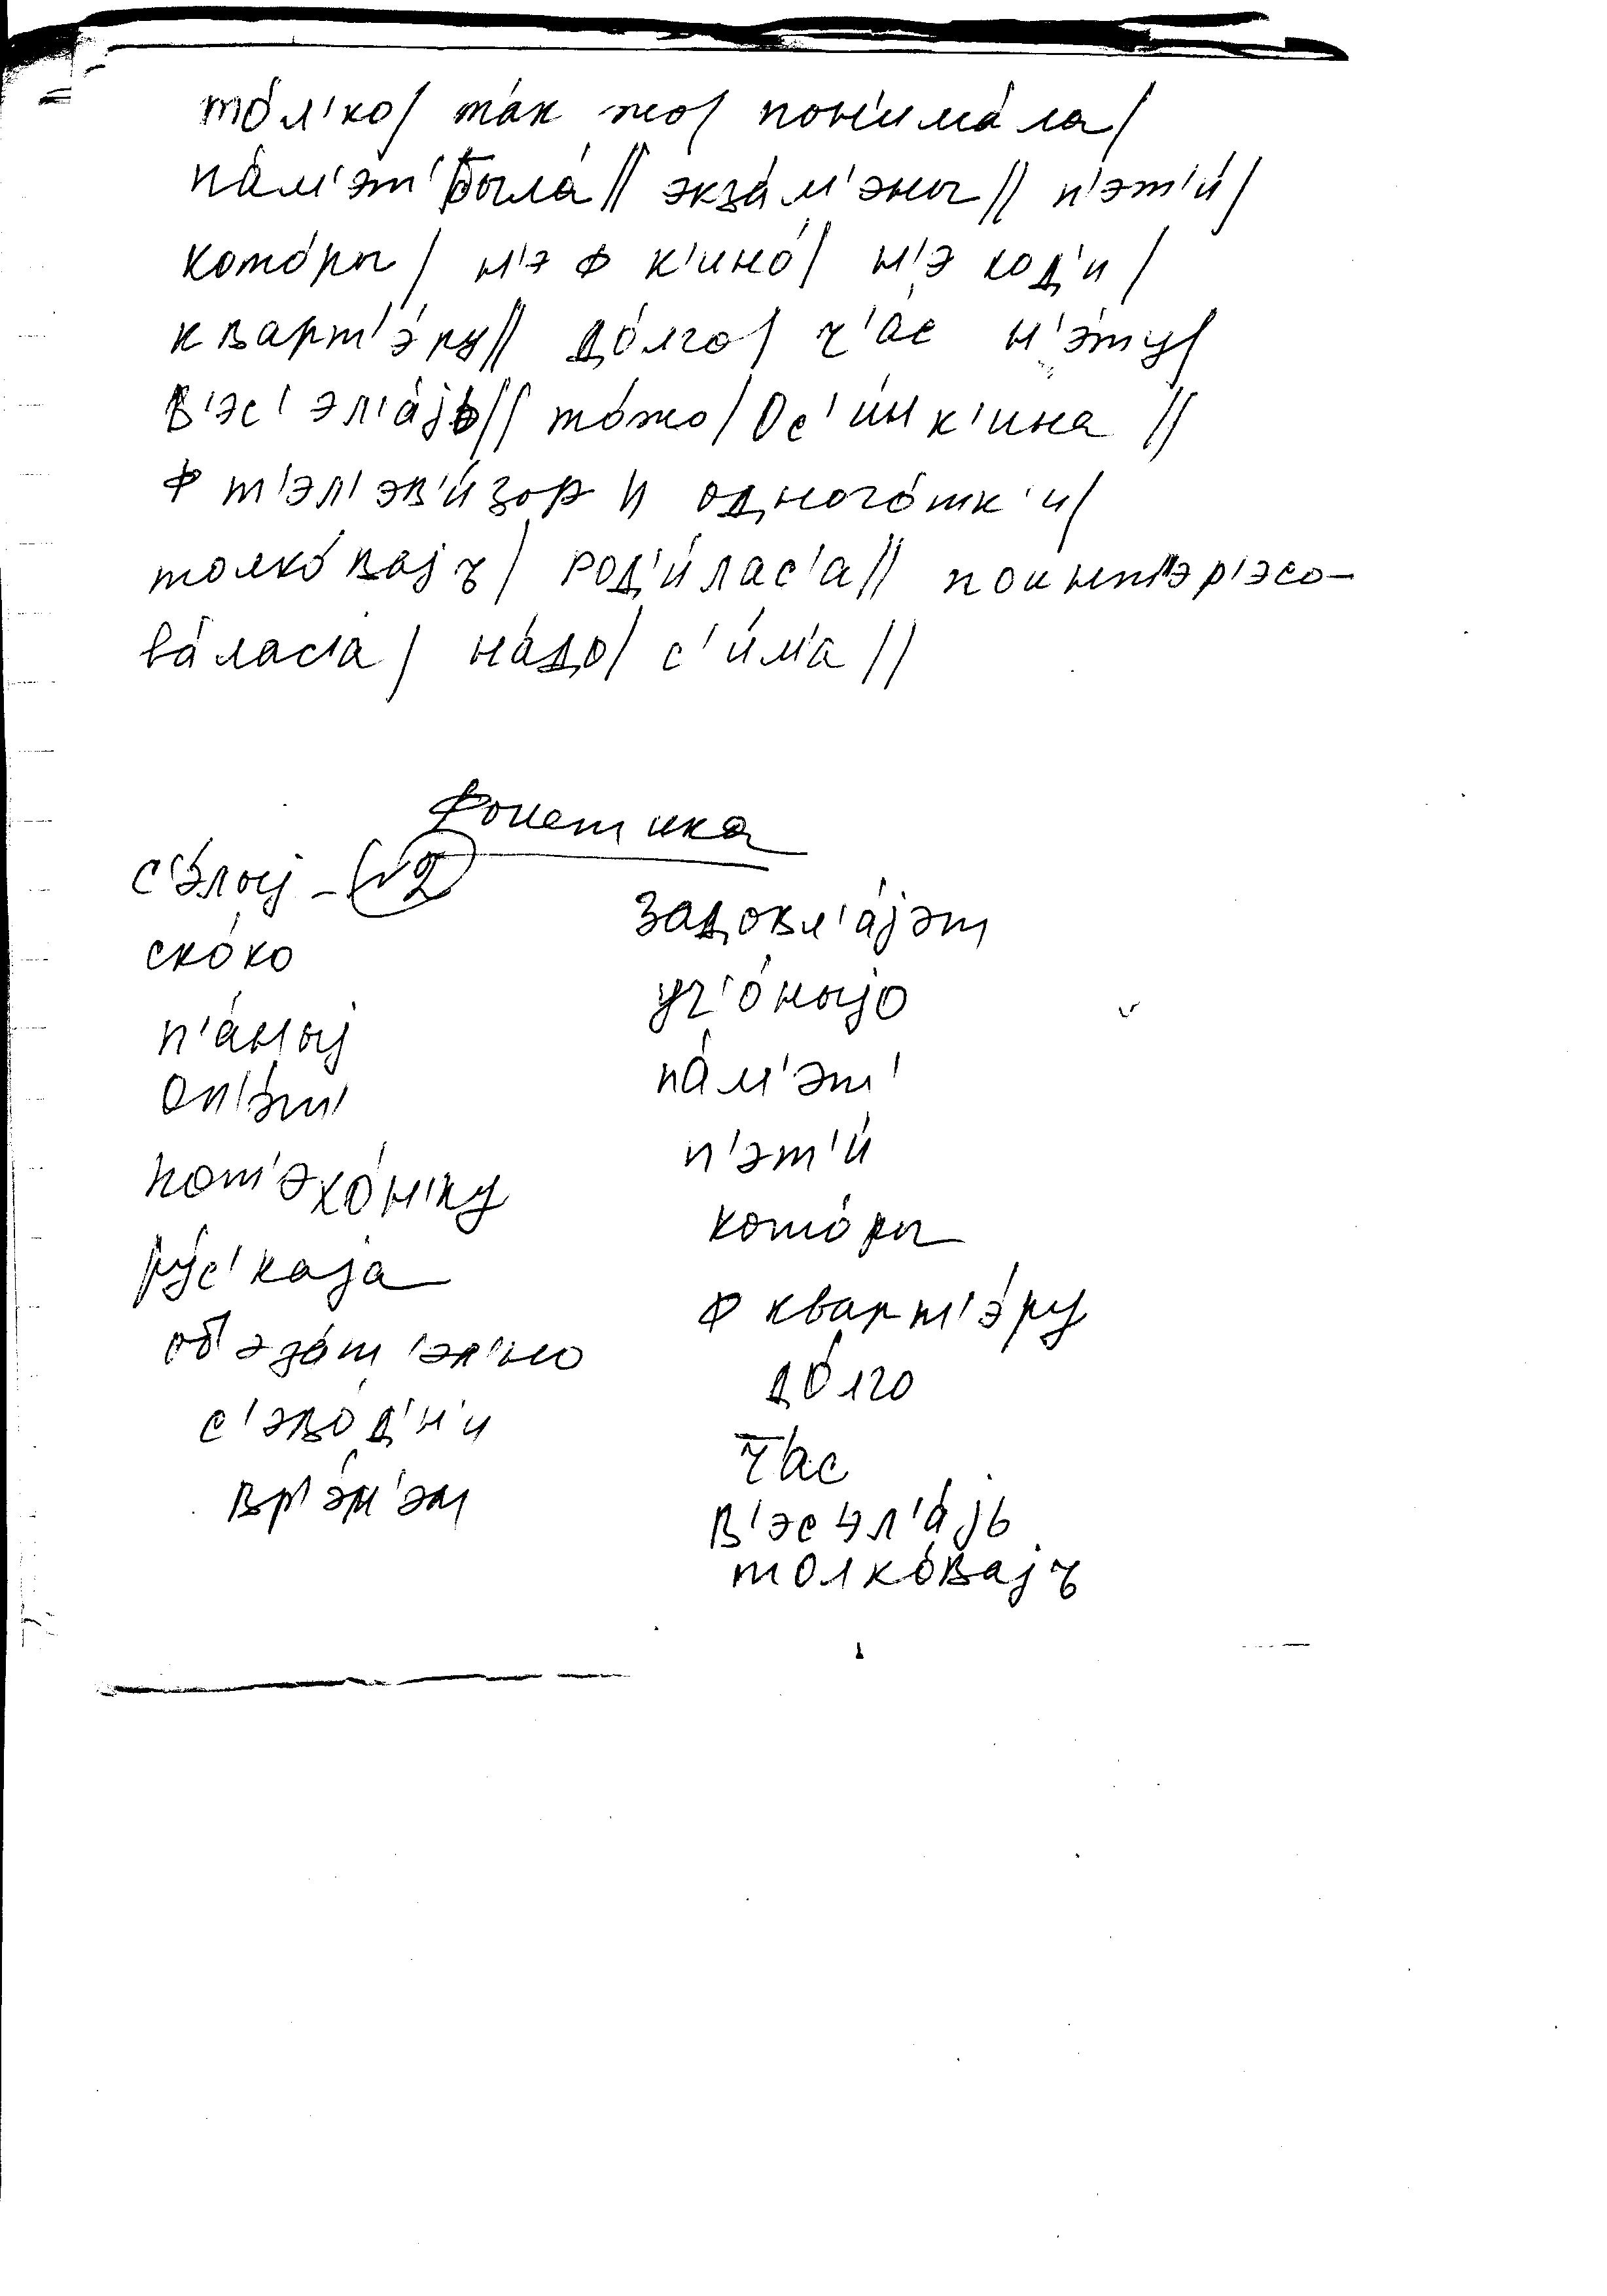 то́л'ко/ та́к жо/ пон'има́ла/
па́м'эт' была́// экза́м'эны// п'эт'и́/
кото́ры/ н'э ф к'ино́/ н'э ход'и/
кварт'э́ру// до́лго/ ч'а́с н'э́ту/
в'эс'эл'а́jь// то́жо/ Ос'и́нк'ина //
ф т'эл'эв'и́зор и одного́тк'и/
толко́вајъ/ род'и́лас'а// поинт'эр'эсо-
ва́лас'а/ на́до/ с'и́м'а //
Фонетика
с'э́лыj - (№2)
ско́ко
п'а́ныj
оп'э́т'
пот'эхо́н'ку
ру́с'каjа
об'эза́т'эл'но
с'эво́д'н'и
вр'э́м'эм
задовл'а́jэт
уч'о́ныjо
па́м'эт'
п'эт'и́
кото́ры
ф кварт'э́ру
до́лго
ч'ас
в'эс'эл'а́jь
толко́вајъ